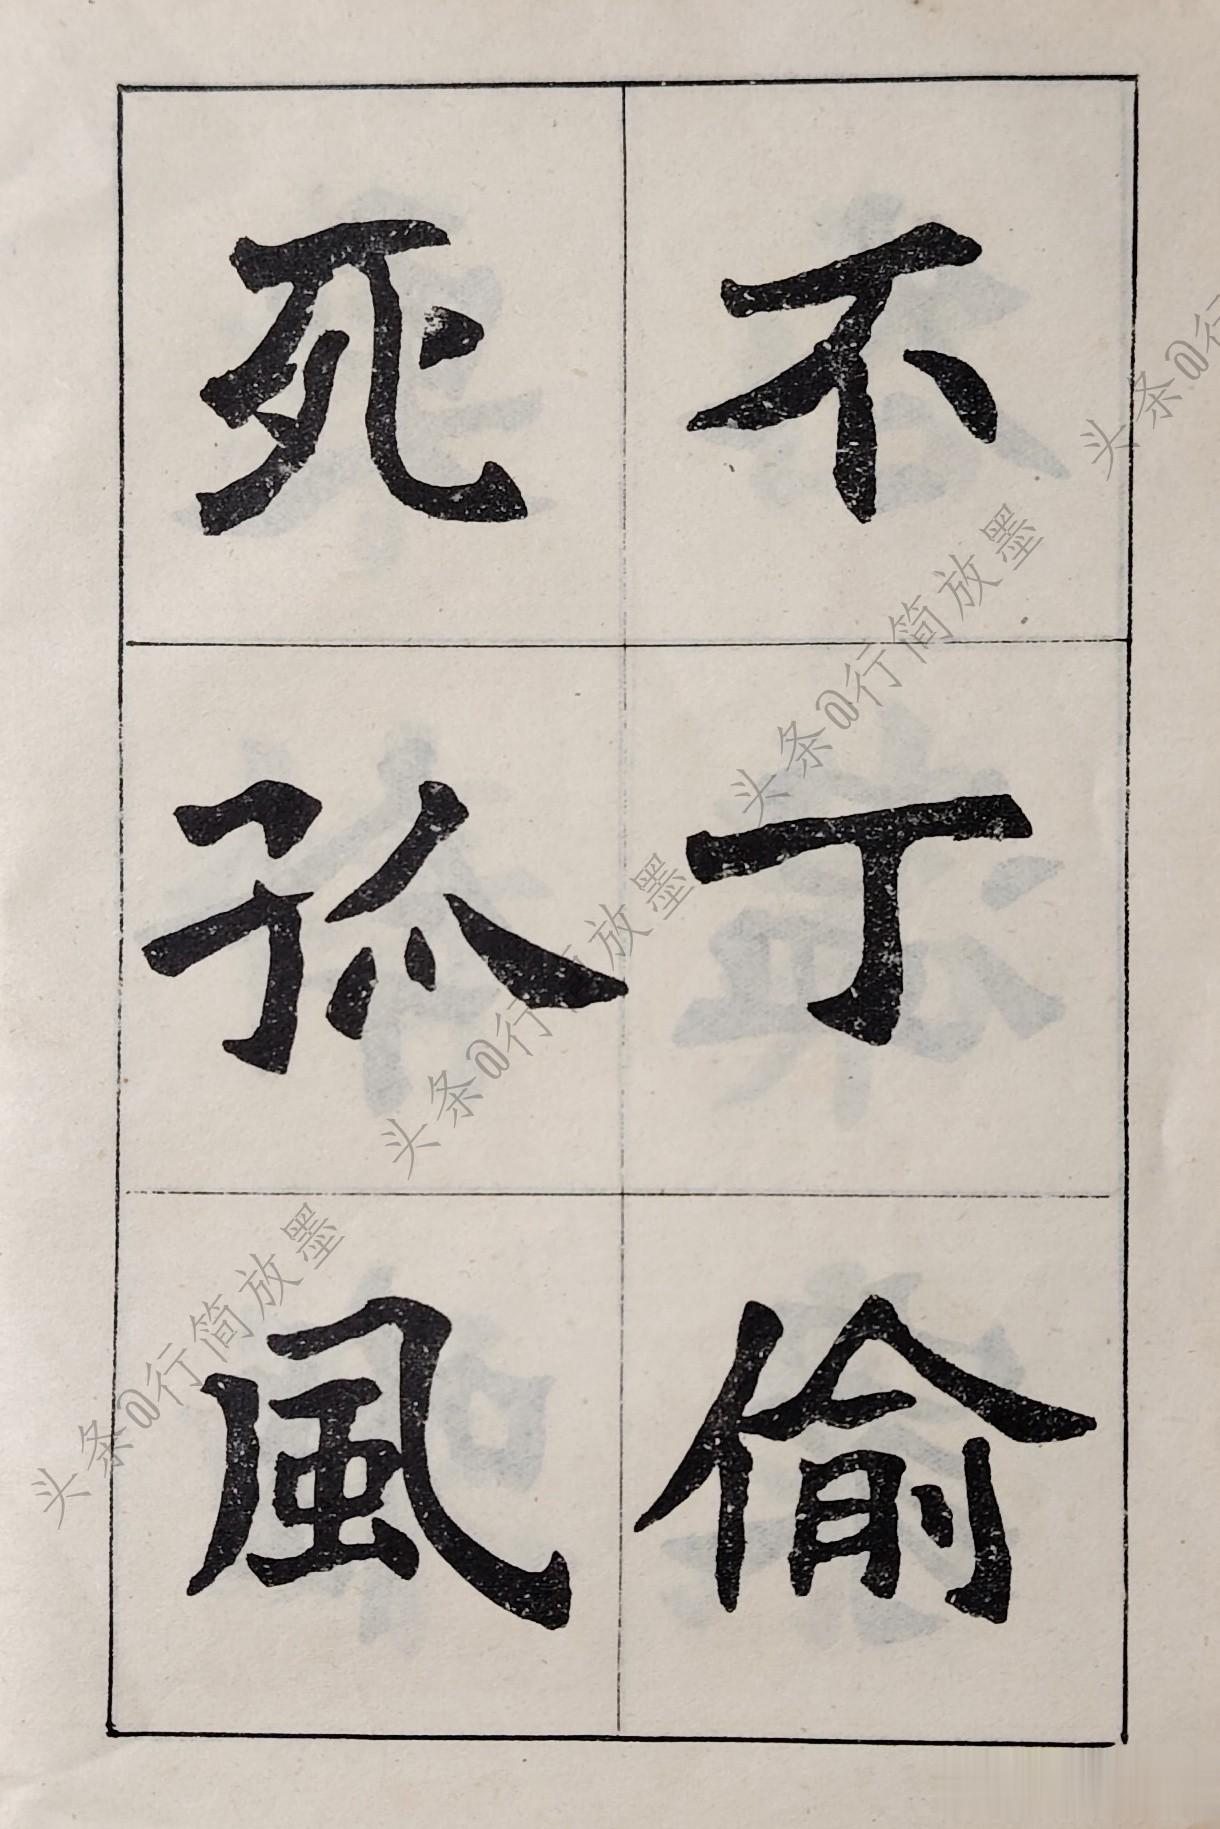 不丁偷
死孤風
头条@行简放墨
头条@行简放墨
头条@行简放墨
头条@行